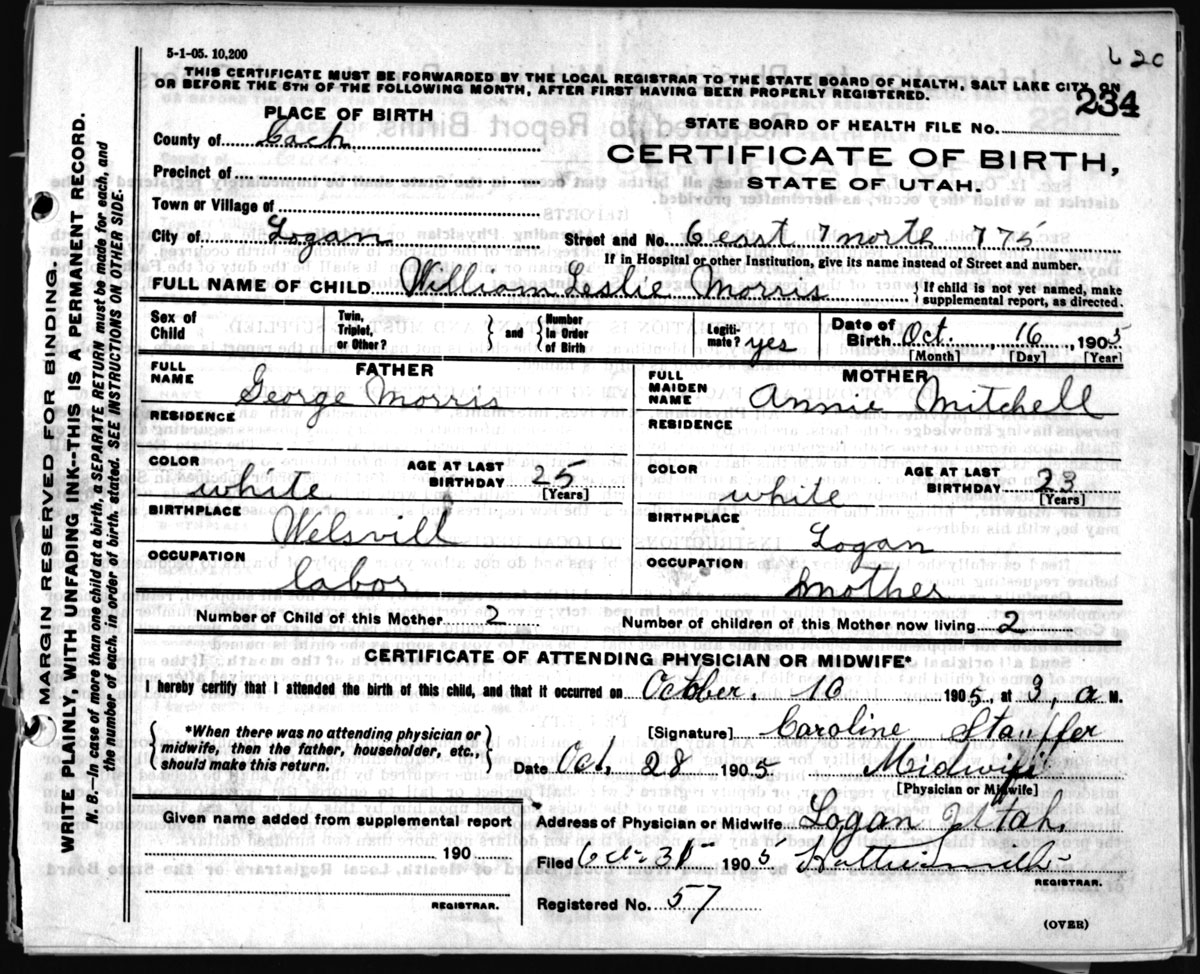 5-1-05. 10,200
620
THIS CERTIFICATE MUST BE FORWARDED BY THE LOCAL REGISTRAR TO THE STATE BOARD OF HEALTH, SALT LAKE CITY, ON
OR BEFORE THE 5TH OF THE FOLLOWING MONTH, AFTER FIRST HAVING BEEN PROPERLY REGISTERED.
234
PLACE OF BIRTH
STATE BOARD OF HEALTH FILE No.
County of Cach
CERTIFICATE OF BIRTH,
Precinct of
STATE OF UTAH.
Town or Village of
City of Logan
Street and No. 6 east 7 north 775
If in Hospital or other Institution, give its name instead of Street and number.
FULL NAME OF CHILD William Leslie Morris
{ If child is not yet named, make
supplemental report, as directed.
Sex of Child
Twin, Triplet, or Other?
{ and } Number in Order of Birth
Legiti-mate? yes
Date of Birth Oct. 16, 1905
[Month] [Day] [Year]
FATHER
FULL NAME George Morris
MOTHER
FULL MAIDEN NAME Annie Mitchell
RESIDENCE
RESIDENCE
COLOR white
AGE AT LAST BIRTHDAY 25
[Years]
COLOR white
AGE AT LAST BIRTHDAY 23
[Years]
BIRTHPLACE Welsvill
BIRTHPLACE Logan
OCCUPATION labor
OCCUPATION mother
Number of Child of this Mother 2
Number of children of this Mother now living 2
CERTIFICATE OF ATTENDING PHYSICIAN OR MIDWIFE*
I hereby certify that I attended the birth of this child, and that it occurred on October. 16 1905, at 3, a M.
{ *When there was no attending physician or
midwife, then the father, householder, etc.,
should make this return. }
[Signature] Caroline Stauffer
Date Oct. 28 1905
Midwife
[Physician or Midwife]
Given name added from supplemental report
190
REGISTRAR.
Address of Physician or Midwife Logan Utah,
Filed Oct 31 1905
REGISTRAR.
Registered No. 57
(OVER)
MARGIN RESERVED FOR BINDING.
WRITE PLAINLY, WITH UNFADING INK--THIS IS A PERMANENT RECORD.
N. B.--In case of more than one child at a birth, a SEPARATE RETURN must be made for each, and
the number of each, in order of birth, stated. SEE INSTRUCTIONS ON OTHER SIDE.